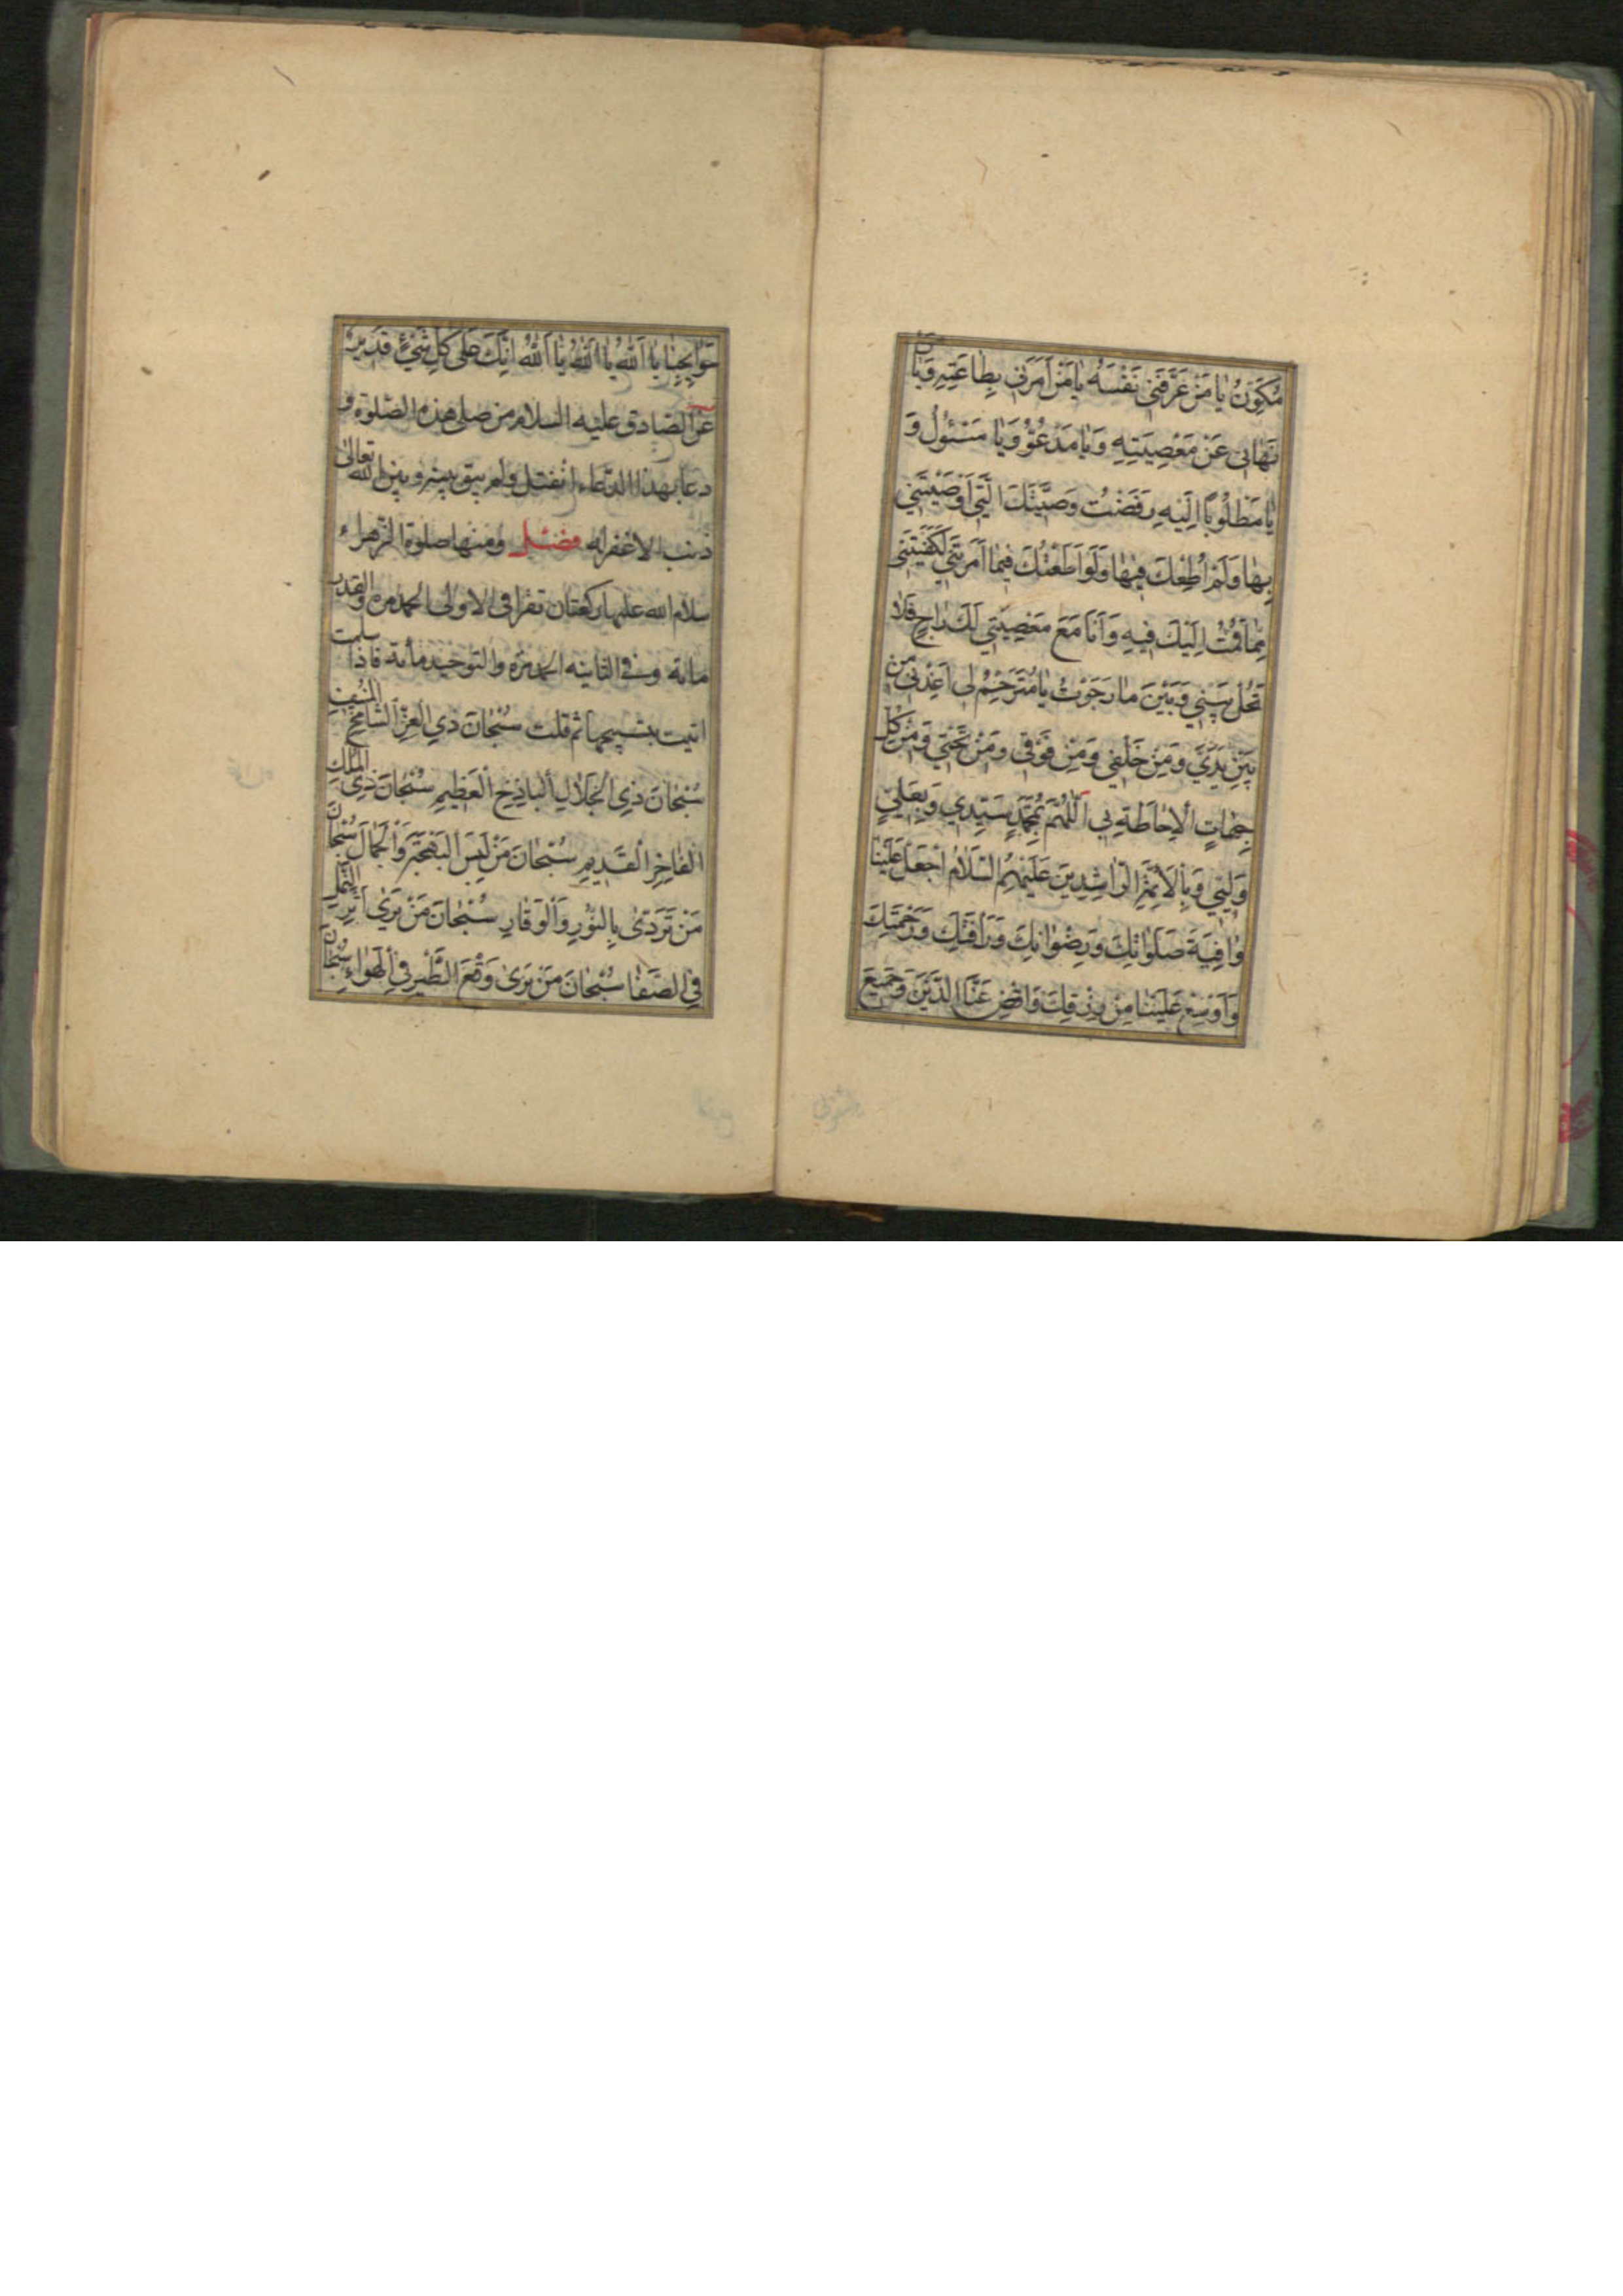 مُكَوِّنُ يَا مَنْ عَرَّفَنِي نَفْسَهُ يَا مَنْ اَمَرَنِي بِطَاعَتِهِ وَيَا مَنْ
نَهَانِي عَنْ مَعْصِيَتِهِ وَيَا مَدْعُوُّ وَيَا مَسْئُولُ وَ
يَا مَطْلُوبًا اِلَيْهِ رَفَضْتُ وَصِيَّتَكَ الَّتِي اَوْصَيْتَنِي
بِهَا وَلَمْ اُطِعْكَ فِيهَا وَلَوْ اَطَعْتُكَ فِيمَا اَمَرْتَنِي لَكَفَيْتَنِي
مَا قُمْتُ اِلَيْكَ فِيهِ وَاَنَا مَعَ مَعْصِيَتِي لَكَ رَاجٍ فَلَا
تَحُلْ بَيْنِي وَبَيْنَ مَا رَجَوْتُ يَا مُتَرَحِّمُ لِي اَعِذْنِي مِنْ
بَيْنِ يَدَيَّ وَمِنْ خَلْفِي وَمِنْ فَوْقِي وَمِنْ تَحْتِي وَمِنْ كُلِّ
جِهَاتِ الْاِحَاطَةِ بِي اَللّٰهُمَّ بِمُحَمَّدٍ سَيِّدِي وَبِعَلِيٍّ
وَلِيِّي وَبِالْاَئِمَّةِ الرَّاشِدِينَ عَلَيْهِمُ السَّلَامُ اجْعَلْ عَلَيْنَا
صَلَوَاتِكَ وَرِضْوَانِكَ وَرَاْفَتِكَ وَرَحْمَتِكَ
وَاَوْسِعْ عَلَيْنَا مِنْ رِزْقِكَ وَاقْضِ عَنَّا الدَّيْنَ وَجَمِيعَ
حَوَائِجِنَا يَا اَللّٰهُ يَا اَللّٰهُ يَا اَللّٰهُ اِنَّكَ عَلَى كُلِّ شَيْءٍ قَدِيرٌ
عن الصادق عليه السلام من صلى هذه الصلوة و
دعا بهذا الدعاء انفتل ولم يبق بينه وبين الله تعالى
ذنب الا غفر له فصل ومنها صلوة الزهراء
سلام الله عليها ركعتان تقرا في الاولى الحمد مرة والقدر
مائة وفي الثانيه الحمد مرة والتوحيد مائة فاذا سلمت
اتيت بتسبيحها ثم قلت سُبْحَانَ ذِي الْعِزِّ الشَّامِخِ الْمُنِيفِ
سُبْحَانَ ذِي الْجَلَالِ الْبَاذِخِ الْعَظِيمِ سُبْحَانَ ذِي الْمُلْكِ
الْفَاخِرِ الْقَدِيمِ سُبْحَانَ مَنْ لَبِسَ الْبَهْجَةَ وَالْجَمَالَ سُبْحَانَ
مَنْ تَرَدَّى بِالنُّورِ وَالْوَقَارِ سُبْحَانَ مَنْ يَرَى اَثَرَ النَّمْلِ
فِي الصَّفَا سُبْحَانَ مَنْ يَرَى وَقْعَ الطَّيْرِ فِي الْهَوَاءِ سُبْحَانَ